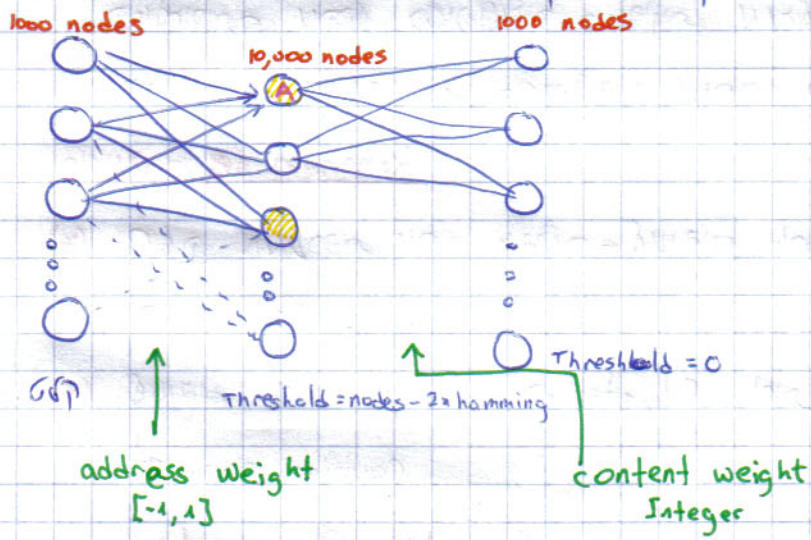 1000 nodes
10,000 nodes
1000 nodes
A
Threshold = 0
Threshold = nodes - 2x hamming
address weight
[-1, 1]
content weight
Integer